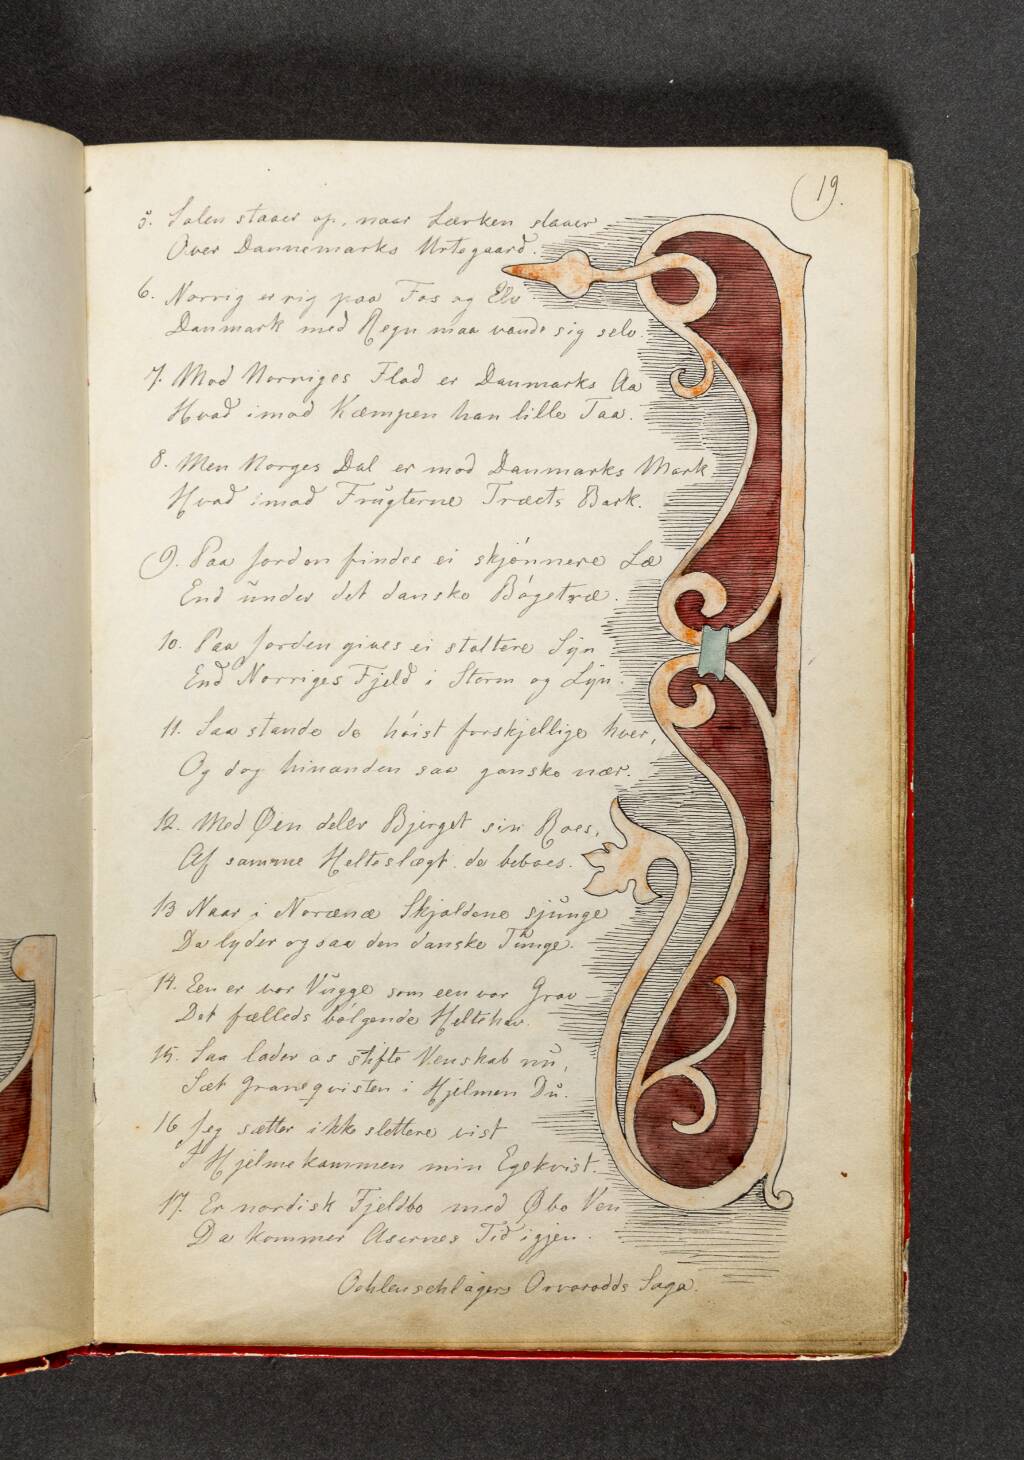 19.
5. Solen staaer op, naar Lærken slaaer
Over Dannemarks Urtegaard.
6. Norrig er rig paa Fos og Elv
Danmark med Regn maa vande sig selv.
7. Mod Norriges Flod er Danmarks Aa
Hvad imod Kæmpen han lille Taa.
8. Men Norges Dal er mod Danmarks Mark
Hvad imod Frugterne Træets Bark.
9. Paa Jorden findes ei skjönnere Læ
End under det danske Bøgetræ.
10. Paa Jorden gives ei stoltere Syn
End Norriges Fjeld i Storm og Lyn.
11. Saa stande de höist forskjellige hver,
Og dog hinanden saa ganske nær.
12. Med Øen deler Bjerget sin Roes,
Af samme Helteslægt de beboes.
13 Naar i Norænæ Skjaldene sjunge
Da lyder og saa den danske Tunge.
14. Een er vor Vugge som een vor Grav
Det fælleds bølgende Heltehav.
15. Saa lader os stifte Venskab nu,
Sæt Graneqvisten i Hjelmen Du.
16 Jeg sætter ikke slettere vist
I Hjelmekammen min Egekvist.
17. Er nordisk Fjeldbo med Øbo Ven
Da kommer Asernes Tid igjen.
Oehlenschlägers Orvarodds Saga.